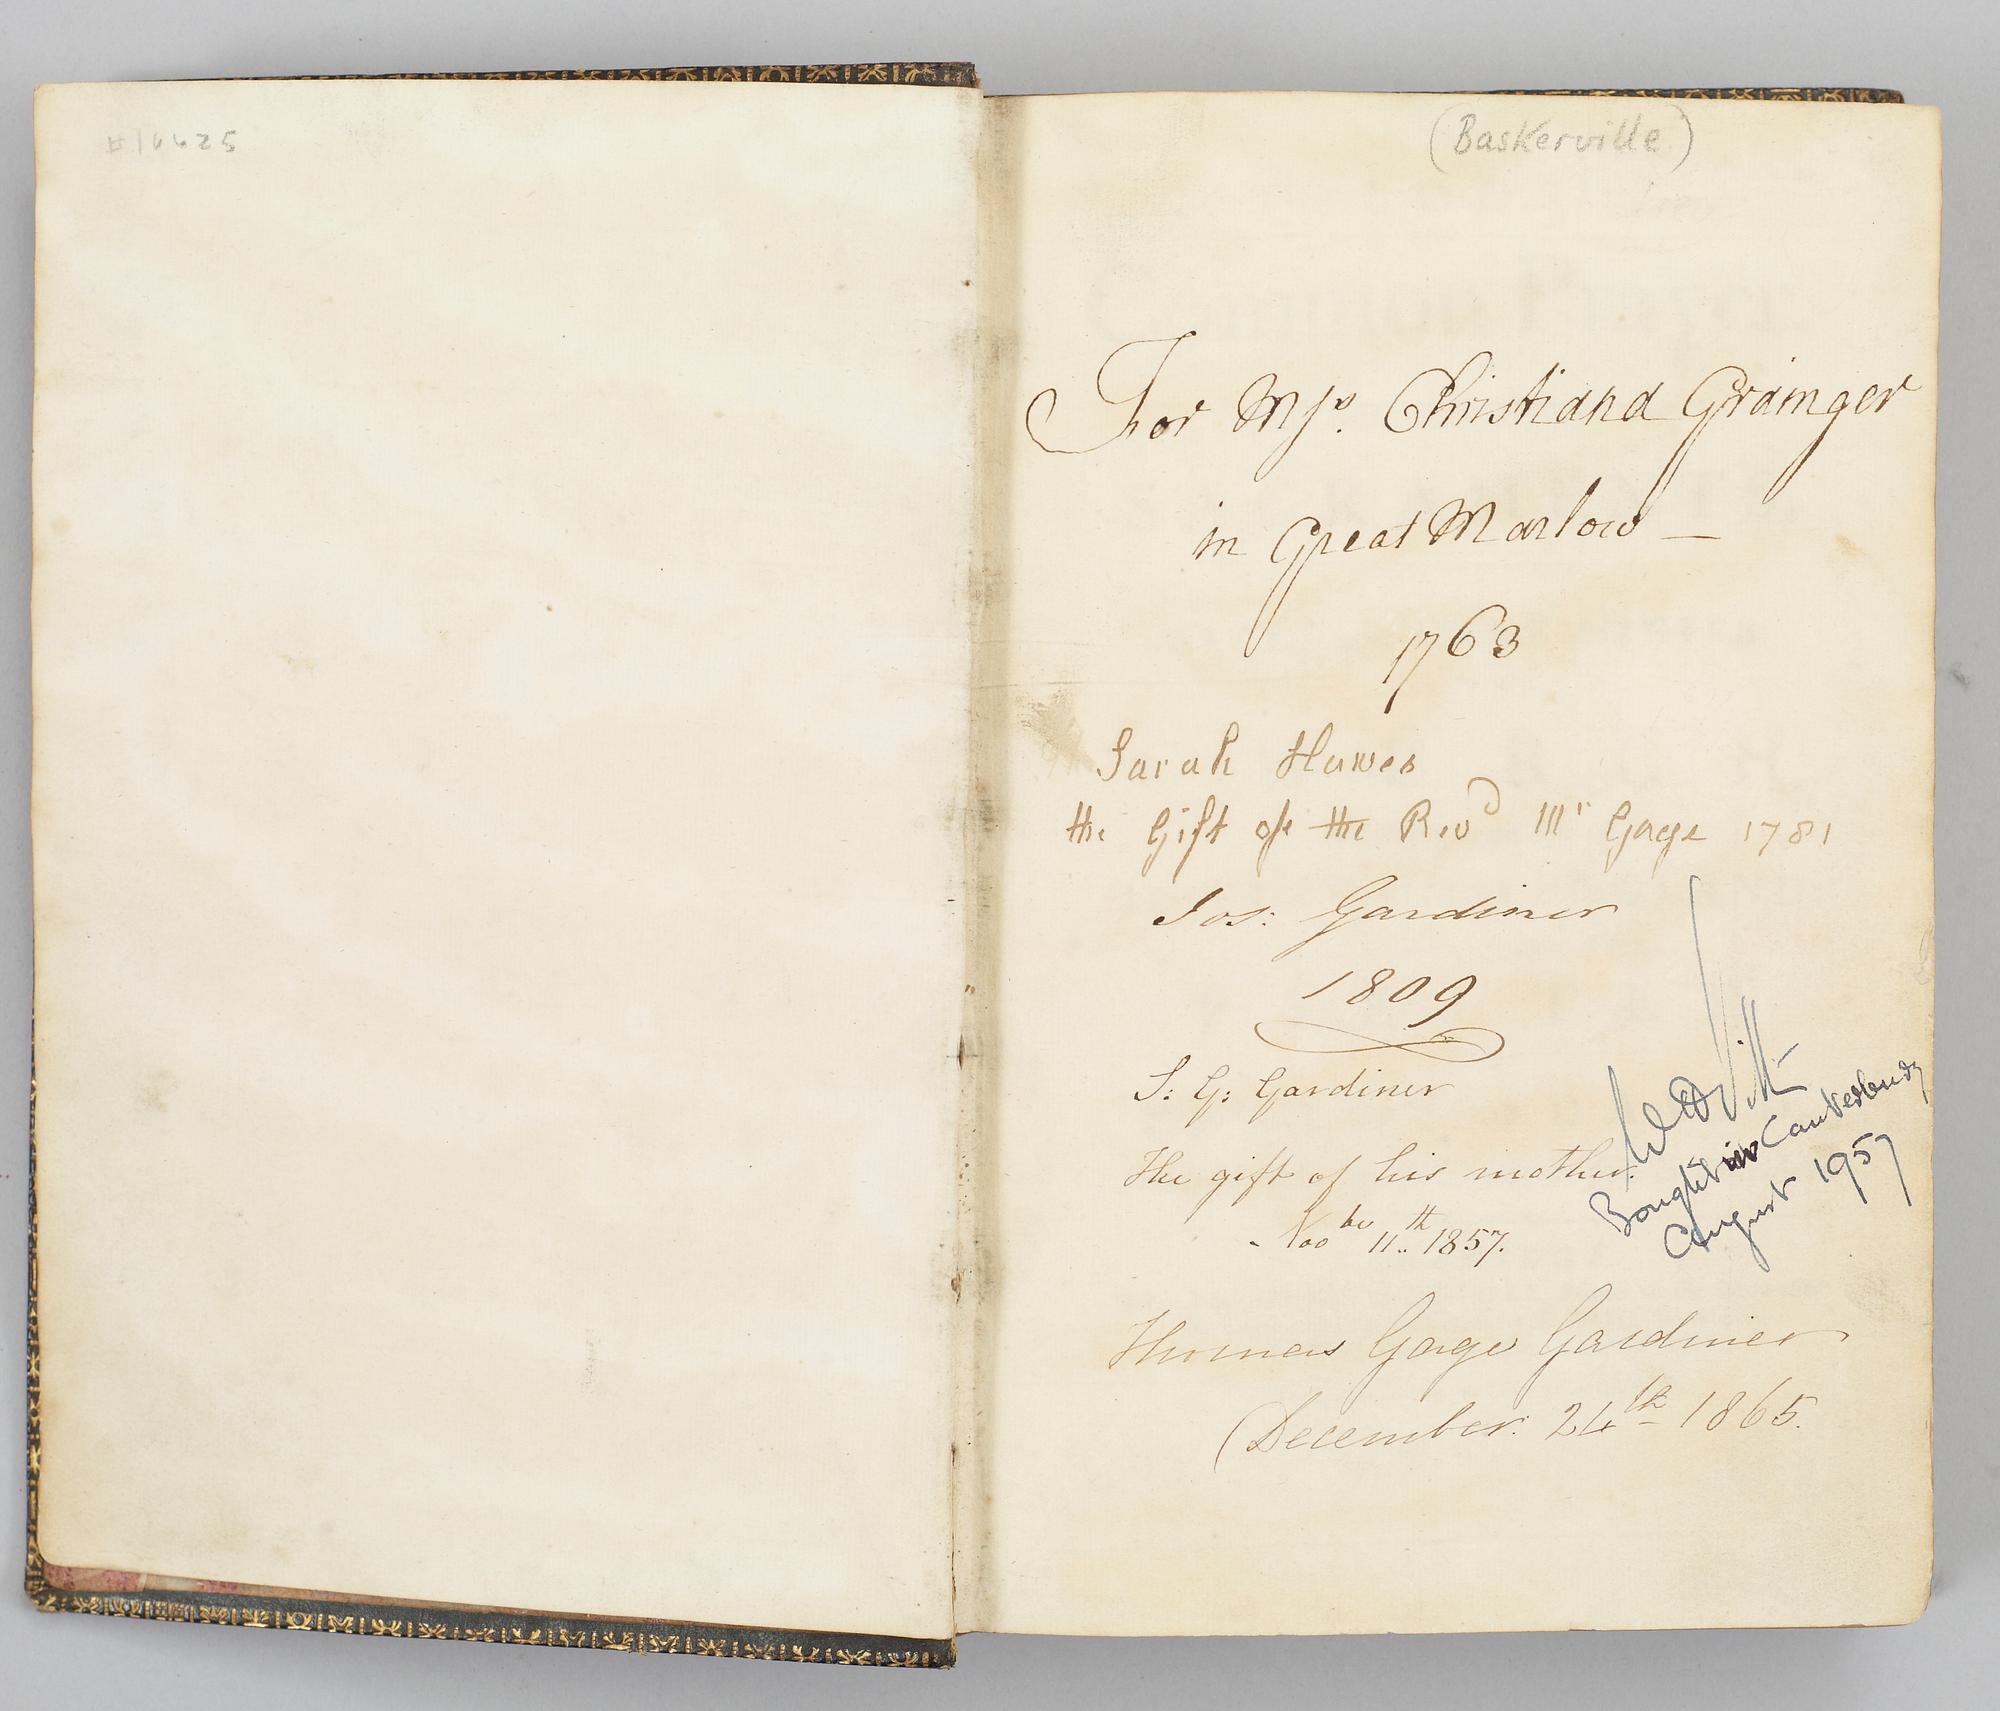 #16625
(Baskerville)
For Mrs. Christiana Grainger
in Great Marlow —
1763
Sarah Hawes
the Gift of the Revd Mr Gage 1781
Jos: Gardiner
1809
S: G: Gardiner
The gift of his mother.
Novbr 11th 1857.
Bought in Canterbury
August 1957
Thomas Gage Gardiner
December 24th 1865.